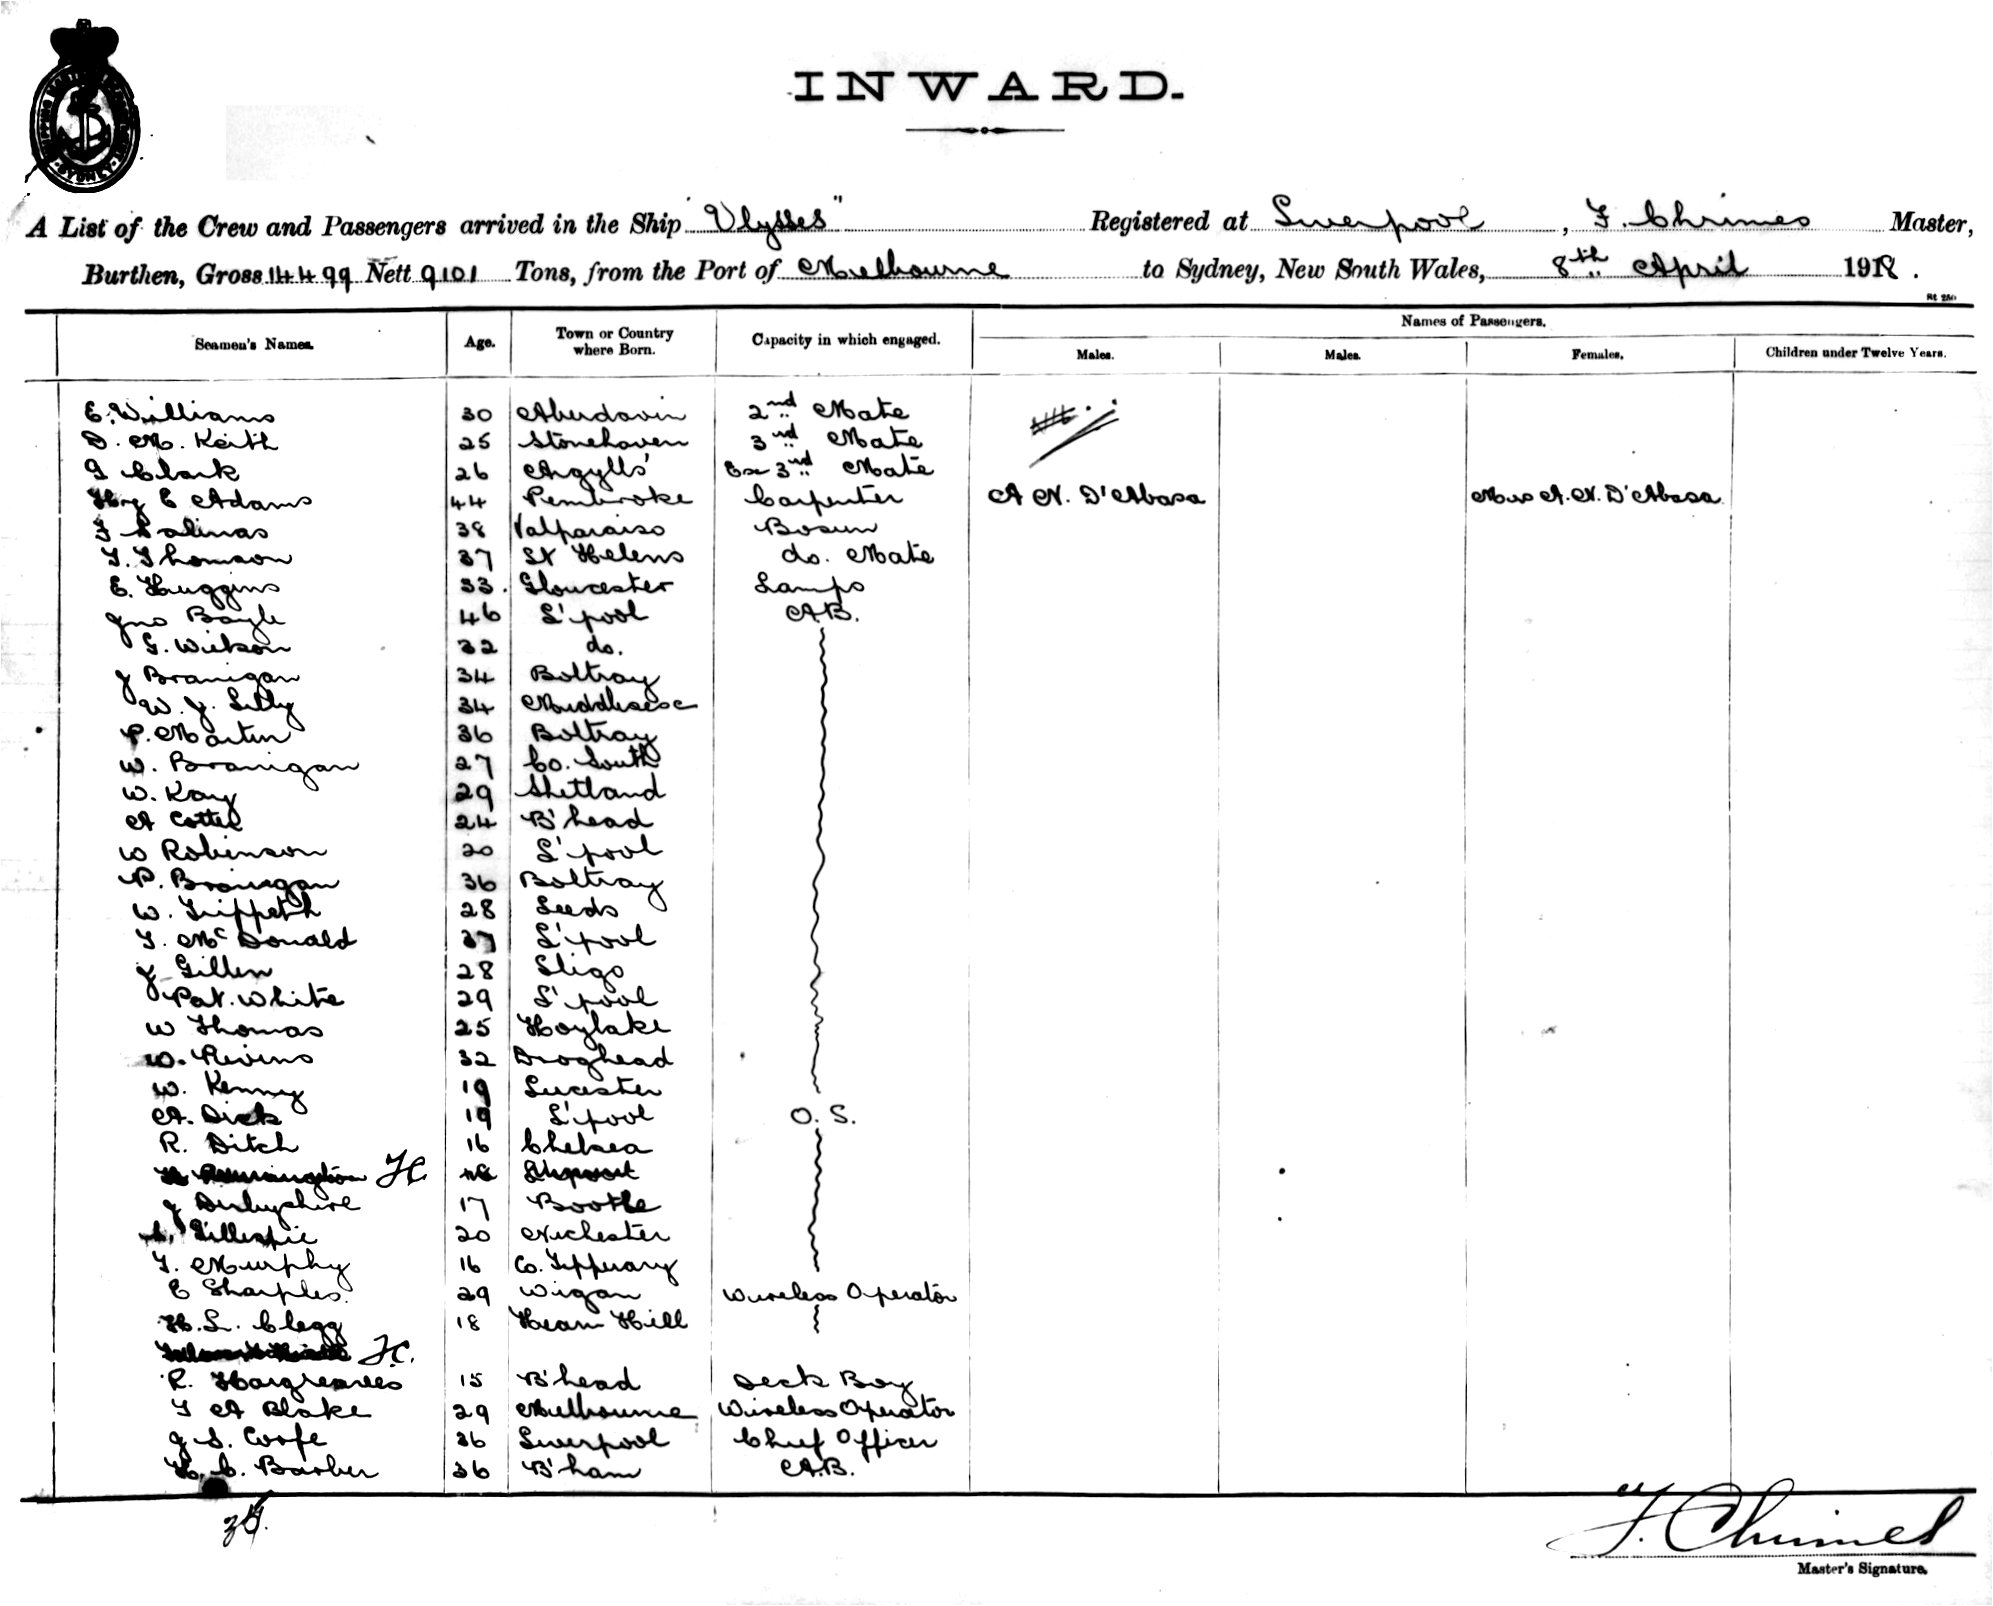 INWARD.
A List of the Crew and Passengers arrived in the Ship "Ulysses" Registered at Liverpool, F. Chrimes Master,
Burthen, Gross 14499 Nett 9101 Tons, from the Port of Melbourne to Sydney, New South Wales, 8th April 1918.
Names of Passengers.
Seamen's Names. Age. Town or Country where Born. Capacity in which engaged. Males. Males. Females. Children under Twelve Years.
E. Williams 30 Aberdovin 2nd Mate
D. M. Keith 25 Stonehaven 3rd Mate
G Clark 26 Argylls' Ex 3rd Mate
Hy E Adams 44 Pembroke Carpenter A N. D'Abasa Mrs A. N. D'Abasa
F Salinas 38 Valparaiso Bosun
T. Thomson 37 St Helens do. Mate
E. Huggins 33. Gloucester Lamps
Jno Bayle 46 L'pool A.B.
G. Wilson 32 do.
J Branigan 34 Boltray
W. J. Lilly 34 Middlesex
P. Martin 36 Boltray
W. Branigan 27 Co. South
W. Kay 29 Shetland
A Cottel 24 B'head
W Robinson 20 L'pool
P. Branigan 36 Boltray
W. Trippeth 28 Leeds
T. McDonald 37 L'pool
J Gillen 28 Sligo
Pat. White 29 L'pool
W Thomas 25 Hoylake
W. Nevins 32 Droghead
W. Kenny 19 Leicester
A. Dick 19 L'pool O. S.
R. Ditch 16 Chelsea
F.C.
J Derbyshire 17 Bootle
Gillespie 20 Nichester
T. Murphy 16 Co. Tipperary
E Sharples. 29 Wigan Wireless Operator
H. L. Clegg 18 Hearn Hill
F.C.
R. Hargreaves 15 B'head Deck Boy
T A Blake 29 Melbourne Wireless Operator
J S. Corfe 36 Liverpool Chief Officer
H. C. Barber 36 B'ham A.B.
F. Chrimes
Master's Signature.